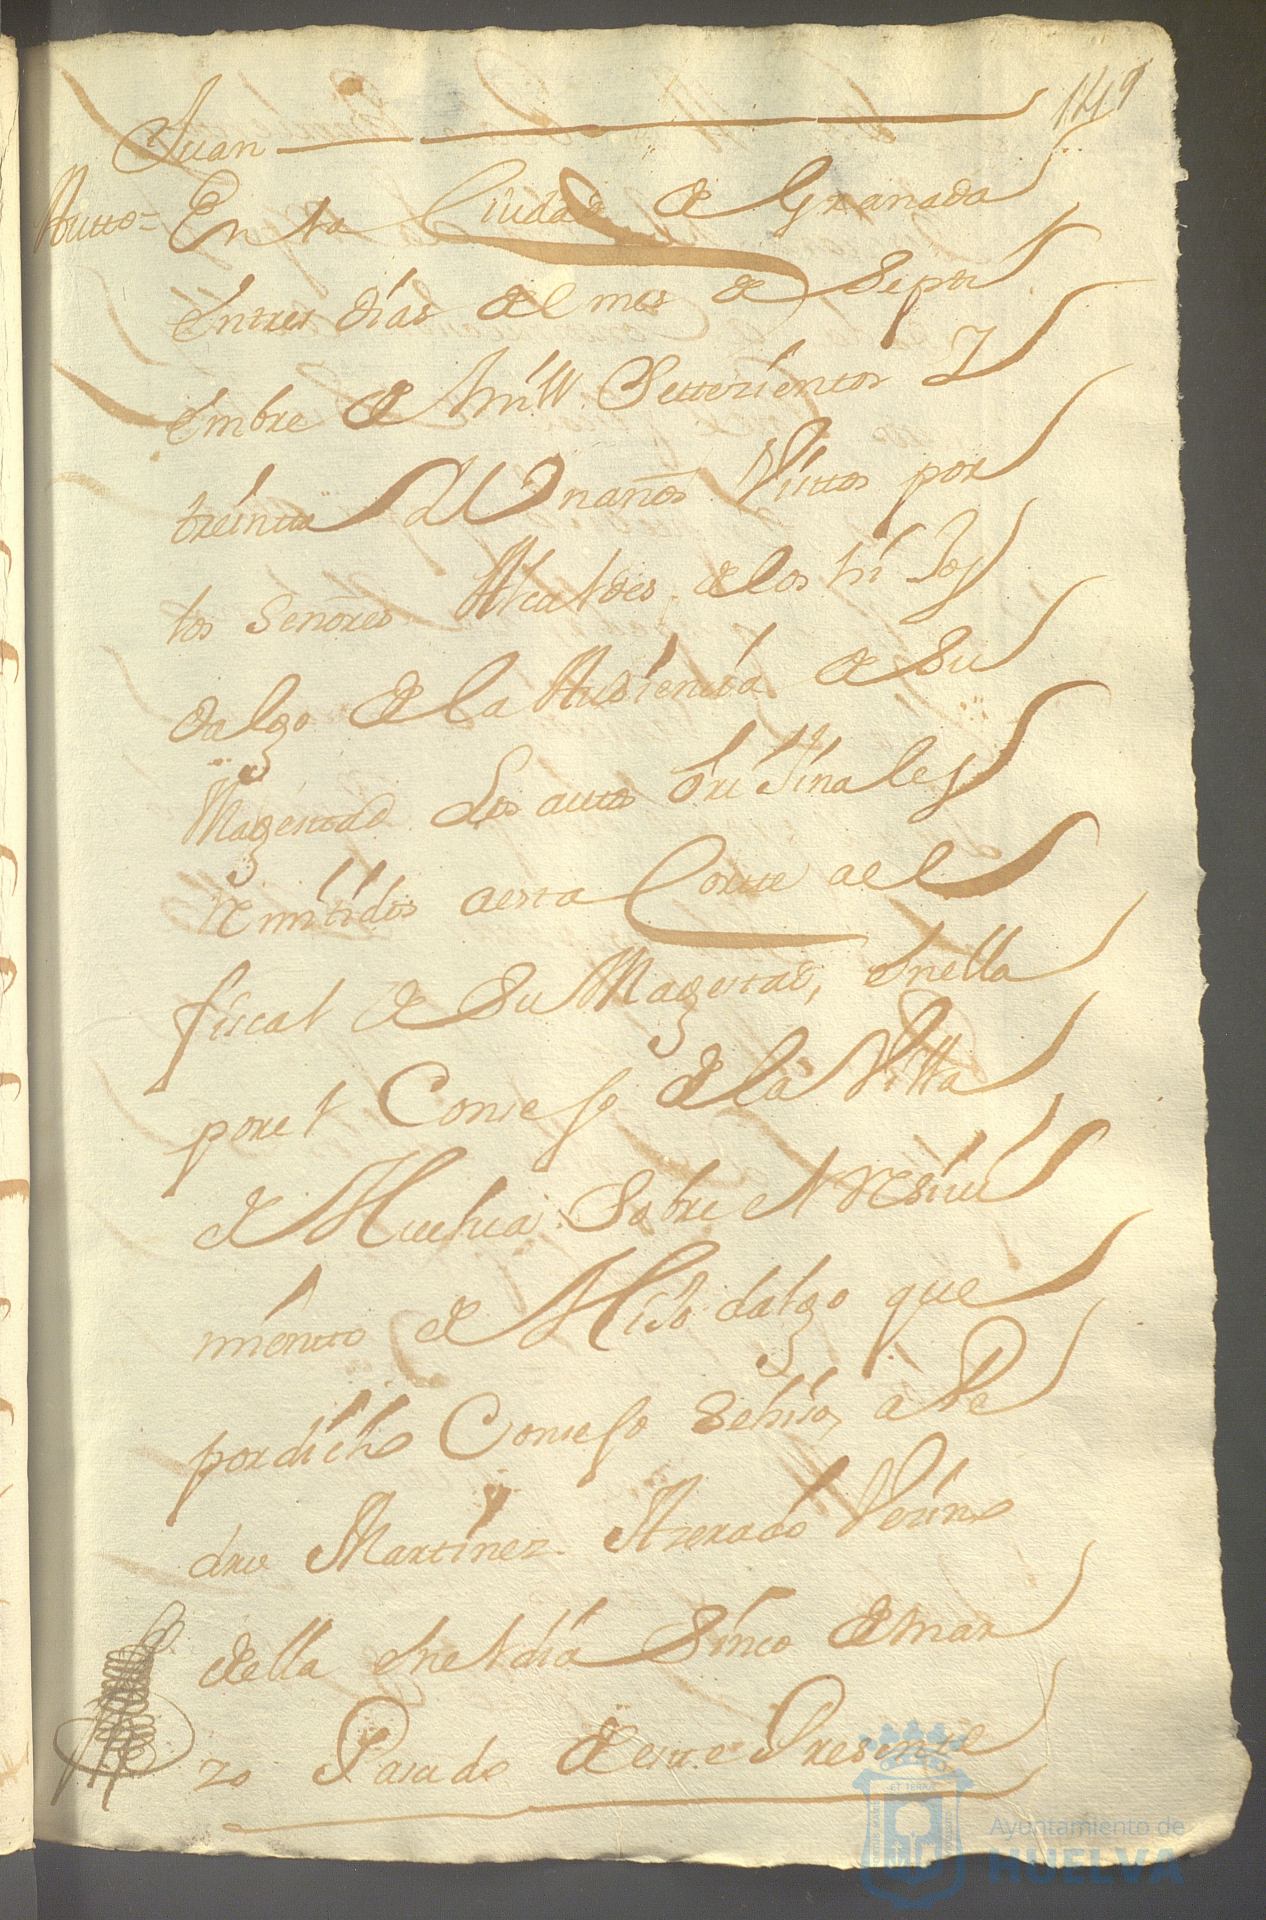 149
Juan
Autto = En la Ciudad de Granada
entres dias del mes de Septi
embre de mill Settezientos Y
treinta Y Un años Vistos por
los Señores Alcaldes de los hi Jos
dalgo de la Audiencia de Su
Magestad Los autos Ori Jinales
Remitidos a esta Corte a el
fiscal de Su Magestad, en ella
por el Consejo de la Villa
de Huelva: Sobre el Resivi
miento de Hijo dalgo que
por dicho Consejo Sehiso, a Pe
dro Martinez Azerado Vezino
della en el dia Sinco de mar
zo Pasado deste Presente
Ayuntamiento de
HUELVA